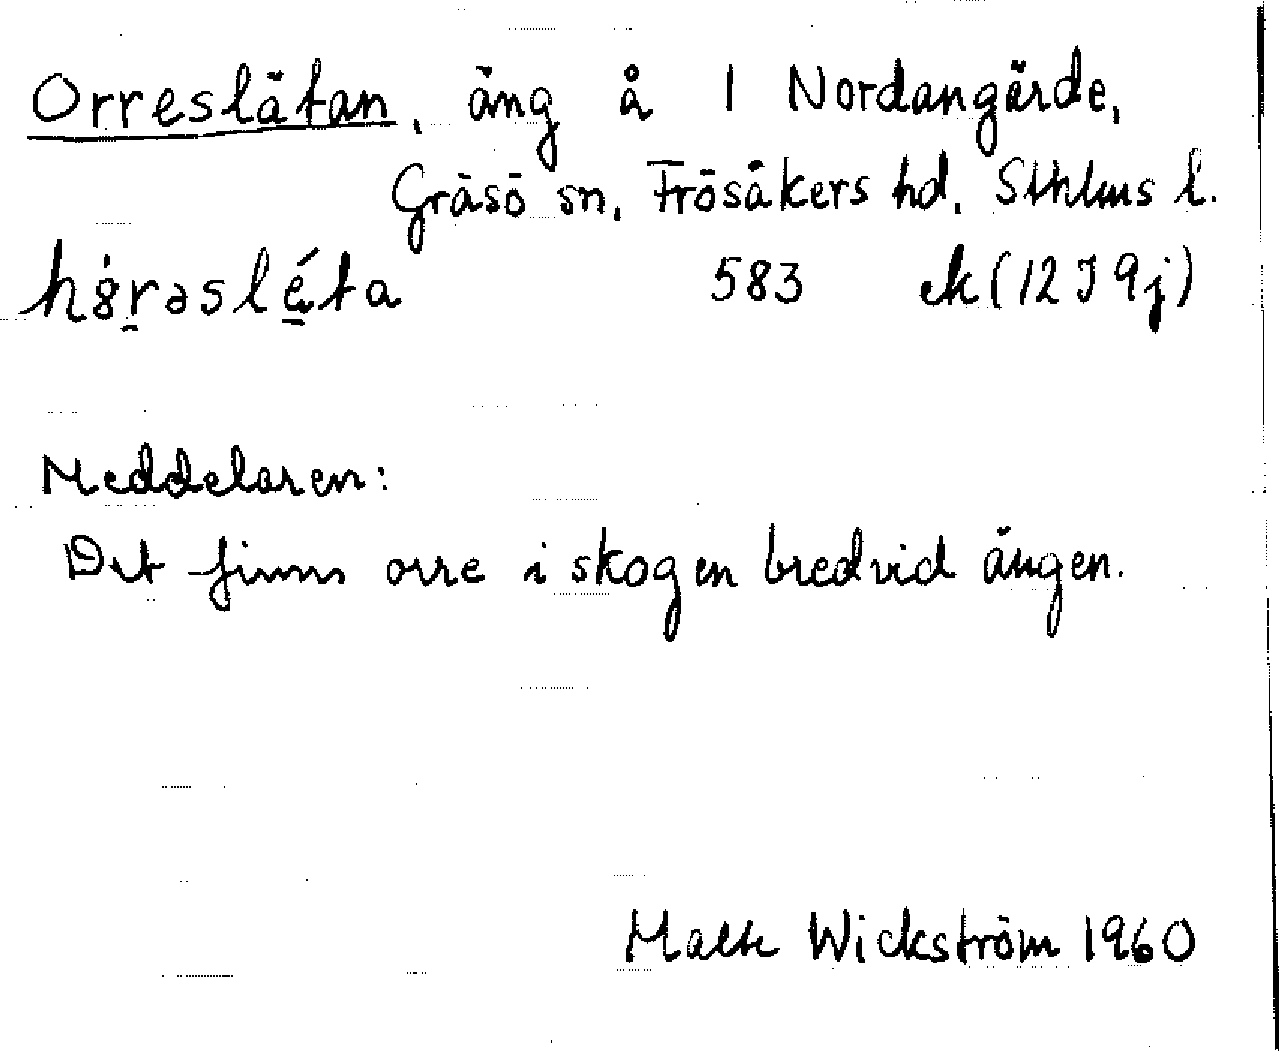 Orreslätan, äng å 1 Nordangärde,
Gräsö sn, Frösåkers hd, Sthlms l.
583 ek (12 I 9j)
Meddelaren:
Det finns orre i skogen bredvid ängen.
Malte Wickström 1960